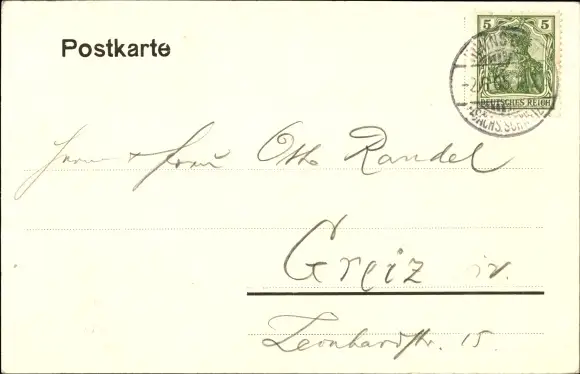 Postkarte
5 5
DEUTSCHES REICH
Herrn + Frau Otto Randel
Greiz i/V.
Leonhardtstr. 15.